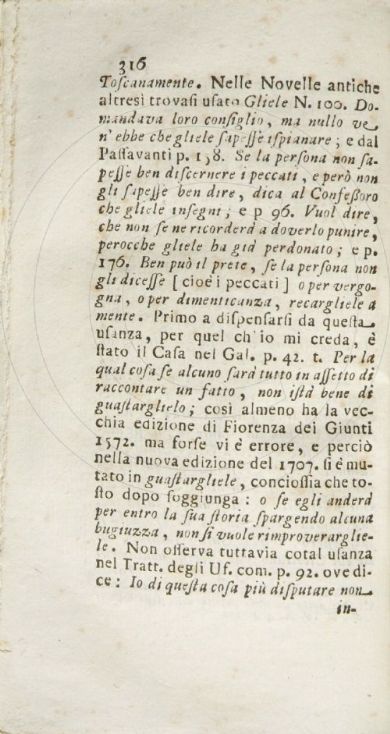 316
Toſcanamente. Nelle Novelle antiche
altresì trovaſi uſato Gliele N. 100. Do-
mandava loro conſiglio, ma nullo ve
n'ebbe che gliele ſapeſſe iſpianare; e dal
Paſſavanti p. 138. Se la perſona non ſa-
peſſe ben diſcernere i peccati, e però non
gli ſapeſſe ben dire, dica al Confeſſoro
che gliele inſegni; e p 96. Vuol dire,
che non ſe ne ricorderà a doverlo punire,
perocche gliele ha già perdonato; e p.
176. Ben può il prete, ſe la perſona non
gli diceſſe [cioè i peccati] o per vergo-
gna, o per dimenticanza, recargliele a
mente. Primo a diſpenſarſi da queſta
uſanza, per quel ch'io mi creda, è
ſtato il Caſa nel Gal. p. 42. t. Per la
qual coſa ſe alcuno ſarà tutto in aſſetto di
raccontare un fatto, non iſtà bene di
guaſtarglielo; così almeno ha la vec-
chia edizione di Fiorenza dei Giunti
1572. ma forſe vi è errore, e perciò
nella nuova edizione del 1707. ſi è mu-
tato in guaſtargliele, concioſſia che to-
ſto dopo ſoggiunga: o ſe egli anderà
per entro la ſua ſtoria ſpargendo alcuna
bugiuzza, non ſi vuole rimproverarglie-
le. Non oſſerva tuttavia cotal uſanza
nel Tratt. degli Uf. com. p. 92. ove di-
ce: Io di queſta coſa più diſputare non
in-